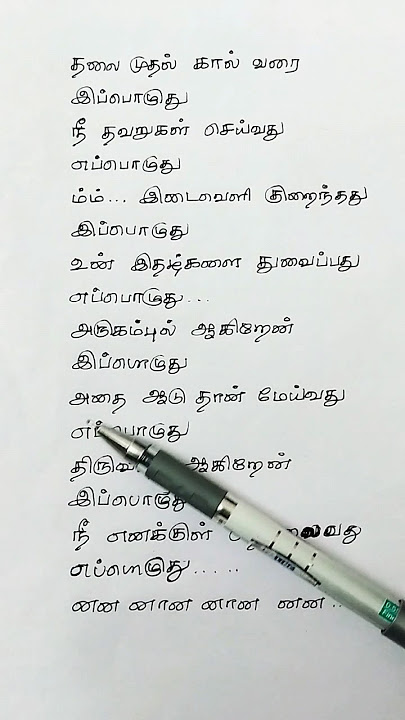 தலை முதல் கால் வரை
இப்பொழுது
நீ தவறுகள் செய்வது
எப்பொழுது
ம்ம்... இடைவெளி குறைந்தது
இப்பொழுது
உன் இதழ்களை துவைப்பது
எப்பொழுது...
அருகம்புல் ஆகிறேன்
இப்பொழுது
அதை ஆடு தான் மேய்வது
எப்பொழுது
ஆகிறேன்
இப்பொழுது
நீ எனக்குள்
எப்பொழுது.....
னன னான னான னன..